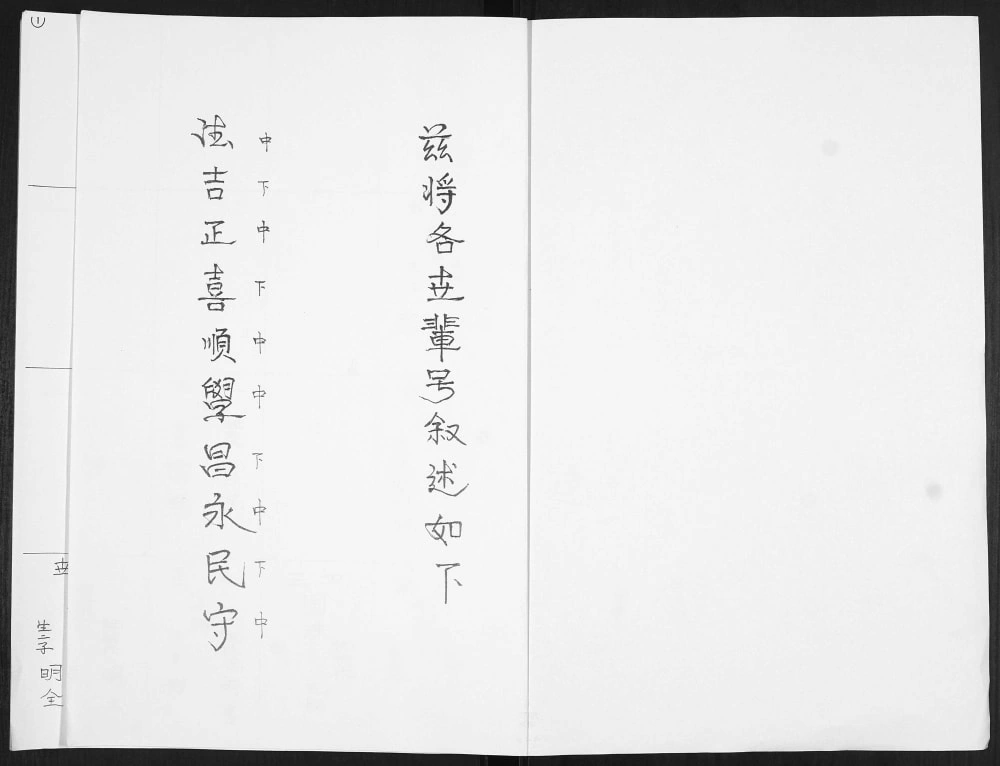 兹将各世辈号叙述如下
中下中下中中下中下中
法吉正喜順學昌永民守
①
世
生二子
明全